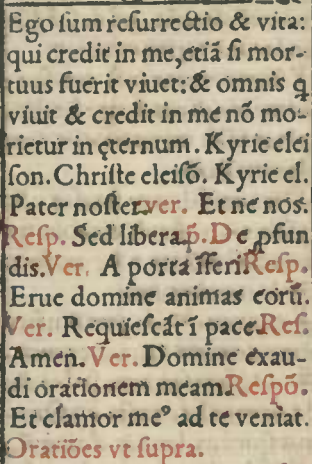 Ego ſum reſurrectio & vita:
qui credit in me, etiā ſi mor-
tuus fuerit viuet: & omnis q
viuit & credit in me nō mo-
rietur in ęternum. Kyrie elei
ſon. Chriſte eleiſō. Kyrie el.
Pater noſter. ver. Et ne nos.
Reſp. Sed libera. p̄. De ꝓfun
dis. Ver. A porta īferi Reſp.
Erue domine animas eorū.
Ver. Requieſcāt ī pace. Reſ.
Amen. Ver. Domine exau-
di orationem meam. Reſpō.
Et clamor meꝰ ad te veniat.
Oratiōes vt ſupra.